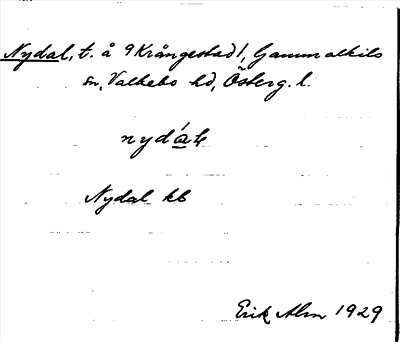 Nydal, t. å 9 Krångestad 1, Gammalkils
sn, Valkebo hd, Österg. l.
Nydal kb
Erik Alm 1929